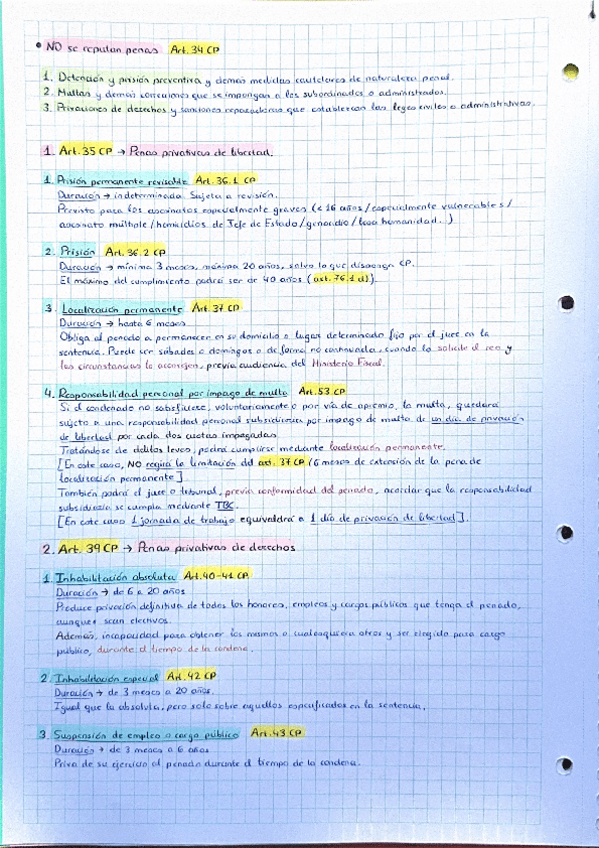 • NO se reputan penas Art. 34 CP
1. Detención y prisión preventiva y demás medidas cautelares de naturaleza penal.
2. Multas y demás correcciones que se impongan a los subordinados o administrados.
3. Privaciones de derechos y sanciones reparadoras que establezcan las leyes civiles o administrativas.
1. Art. 35 CP → Penas privativas de libertad.
1. Prisión permanente revisable Art. 36.1 CP
Duración → indeterminada. Sujeta a revisión.
Previsto para los asesinatos especialmente graves (< 16 años / especialmente vulnerables /
asesinato múltiple / homicidios de Jefe de Estado / genocidio / lesa humanidad...)
2. Prisión Art. 36.2 CP
Duración → mínima 3 meses, máxima 20 años, salvo lo que disponga CP.
El máximo del cumplimiento podrá ser de 40 años (art. 76.1 d)).
3. Localización permanente Art. 37 CP
Duración → hasta 6 meses
Obliga al penado a permanecer en su domicilio o lugar determinado fijo por el juez en la
sentencia. Puede ser sábados o domingos o de forma no continuada, cuando lo solicite el reo y
las circunstancias lo aconsejen, previa audiencia del Ministerio Fiscal.
4. Responsabilidad personal por impago de multa Art. 53 CP
Si el condenado no satisficiere, voluntariamente o por vía de apremio, la multa, quedará
sujeto a una responsabilidad personal subsidiaria por impago de multa de un día de privación
de libertad por cada dos cuotas impagadas
Tratándose de delitos leves, podrá cumplirse mediante localización permanente.
[En este caso, NO regirá la limitación del art. 37 CP (6 meses de extensión de la pena de
localización permanente]
También podrá el juez o tribunal, previa conformidad del penado, acordar que la responsabilidad
subsidiaria se cumpla mediante TBC.
[En este caso 1 jornada de trabajo equivaldrá a 1 día de privación de libertad].
2. Art. 39 CP → Penas privativas de derechos
1. Inhabilitación absoluta Art. 40-41 CP.
Duración → de 6 a 20 años
Produce privación definitiva de todos los honores, empleos y cargos públicos que tenga el penado,
aunque sean electivos.
Además, incapacidad para obtener los mismos o cualesquiera otros y ser elegido para cargo
público, durante el tiempo de la condena.
2. Inhabilitación especial Art. 42 CP
Duración → de 3 meses a 20 años.
Igual que la absoluta, pero solo sobre aquellos especificados en la sentencia.
3. Suspensión de empleo o cargo público Art. 43 CP
Duración → de 3 meses a 6 años
Priva de su ejercicio al penado durante el tiempo de la condena.